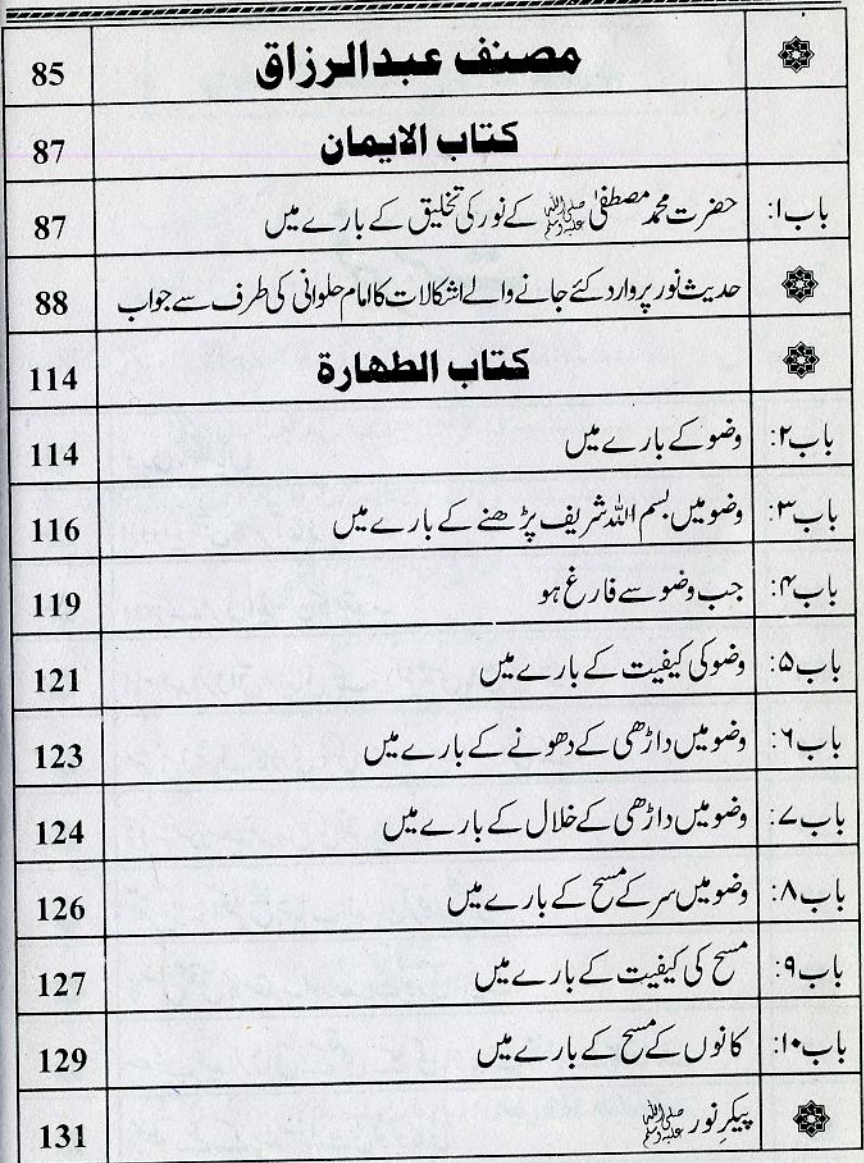 مصنف عبدالرزاق 85
کتاب الایمان 87
باب۱: حضرت محمد مصطفیٰ صلی اللہ علیہ وسلم کے نور کی تخلیق کے بارے میں 87
حدیث نور پر وارد کئے جانے والے اشکالات کا امام حلوانی کی طرف سے جواب 88
کتاب الطهارة 114
باب۲: وضو کے بارے میں 114
باب۳: وضو میں بسم اللہ شریف پڑھنے کے بارے میں 116
باب۴: جب وضو سے فارغ ہو 119
باب۵: وضو کی کیفیت کے بارے میں 121
باب۶: وضو میں داڑھی کے دھونے کے بارے میں 123
باب۷: وضو میں داڑھی کے خلال کے بارے میں 124
باب۸: وضو میں سر کے مسح کے بارے میں 126
باب۹: مسح کی کیفیت کے بارے میں 127
باب۱۰: کانوں کے مسح کے بارے میں 129
پیکرِ نور صلی اللہ علیہ وسلم 131